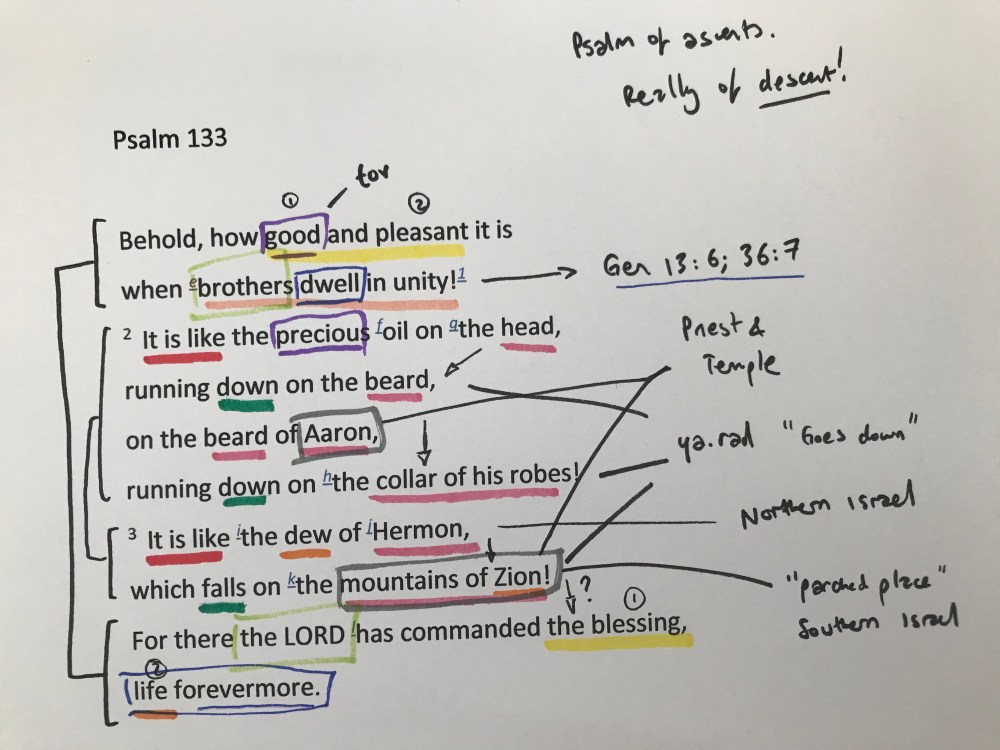 Psalm of ascents.
Really of descent!
Psalm 133
tov
① ②
Behold, how good and pleasant it is
when e brothers dwell in unity! 1
Gen 13:6; 36:7
2 It is like the precious f oil on g the head,
Priest &
Temple
running down on the beard,
on the beard of Aaron,
ya.rad "Goes down"
running down on h the collar of his robes!
Northern Israel
3 It is like i the dew of j Hermon,
which falls on k the mountains of Zion!
"parched place"
Southern Israel
? ①
For there the LORD l has commanded the blessing,
②
life forevermore.